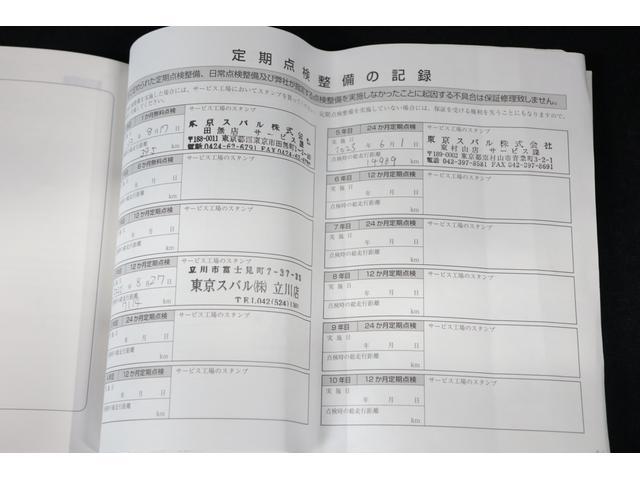 定期点検整備の記録
られた定期点検整備、日常点検整備及び弊社が指定する点検整備を実施しなかったことに起因する不具合は保証修理致しません。
を実施した場合には、サービス工場においてスタンプを
定期点検整備を実施していない場合には、保証を受ける権利を失うことにもなりますので、
1か月無料点検
サービス工場のスタンプ
東京スバル株式会社
田無店 サービス課
〒188-0011 東京都西東京市田無町
電話
FAX
年 月 日
km
6か月無料点検
サービス工場のスタンプ
年 月 日
km
12か月定期点検
サービス工場のスタンプ
年 月 日
km
12か月定期点検
サービス工場のスタンプ
立川市富士見町7-37-
東京スバル㈱ 立川店
TEL.042(524)
年 8月27日
km
24か月定期点検
サービス工場のスタンプ
年 月 日
km
12か月定期点検
サービス工場のスタンプ
年 月 日
km
5年目 24か月定期点検
サービス工場のスタンプ
実施日
6月1日
点検時の総走行距離
km
東京スバル株式会社
東村山店 サービス課
〒189-0002 東京都東村山市青葉町3-2-1
電話 042-397-8581 FAX 042-397-8691
6年目 12か月定期点検
サービス工場のスタンプ
実施日
年 月 日
点検時の総走行距離
km
7年目 24か月定期点検
サービス工場のスタンプ
実施日
年 月 日
点検時の総走行距離
km
8年目 12か月定期点検
サービス工場のスタンプ
実施日
年 月 日
点検時の総走行距離
km
9年目 24か月定期点検
サービス工場のスタンプ
実施日
年 月 日
点検時の総走行距離
km
10年目 12か月定期点検
サービス工場のスタンプ
実施日
年 月 日
点検時の総走行距離
km